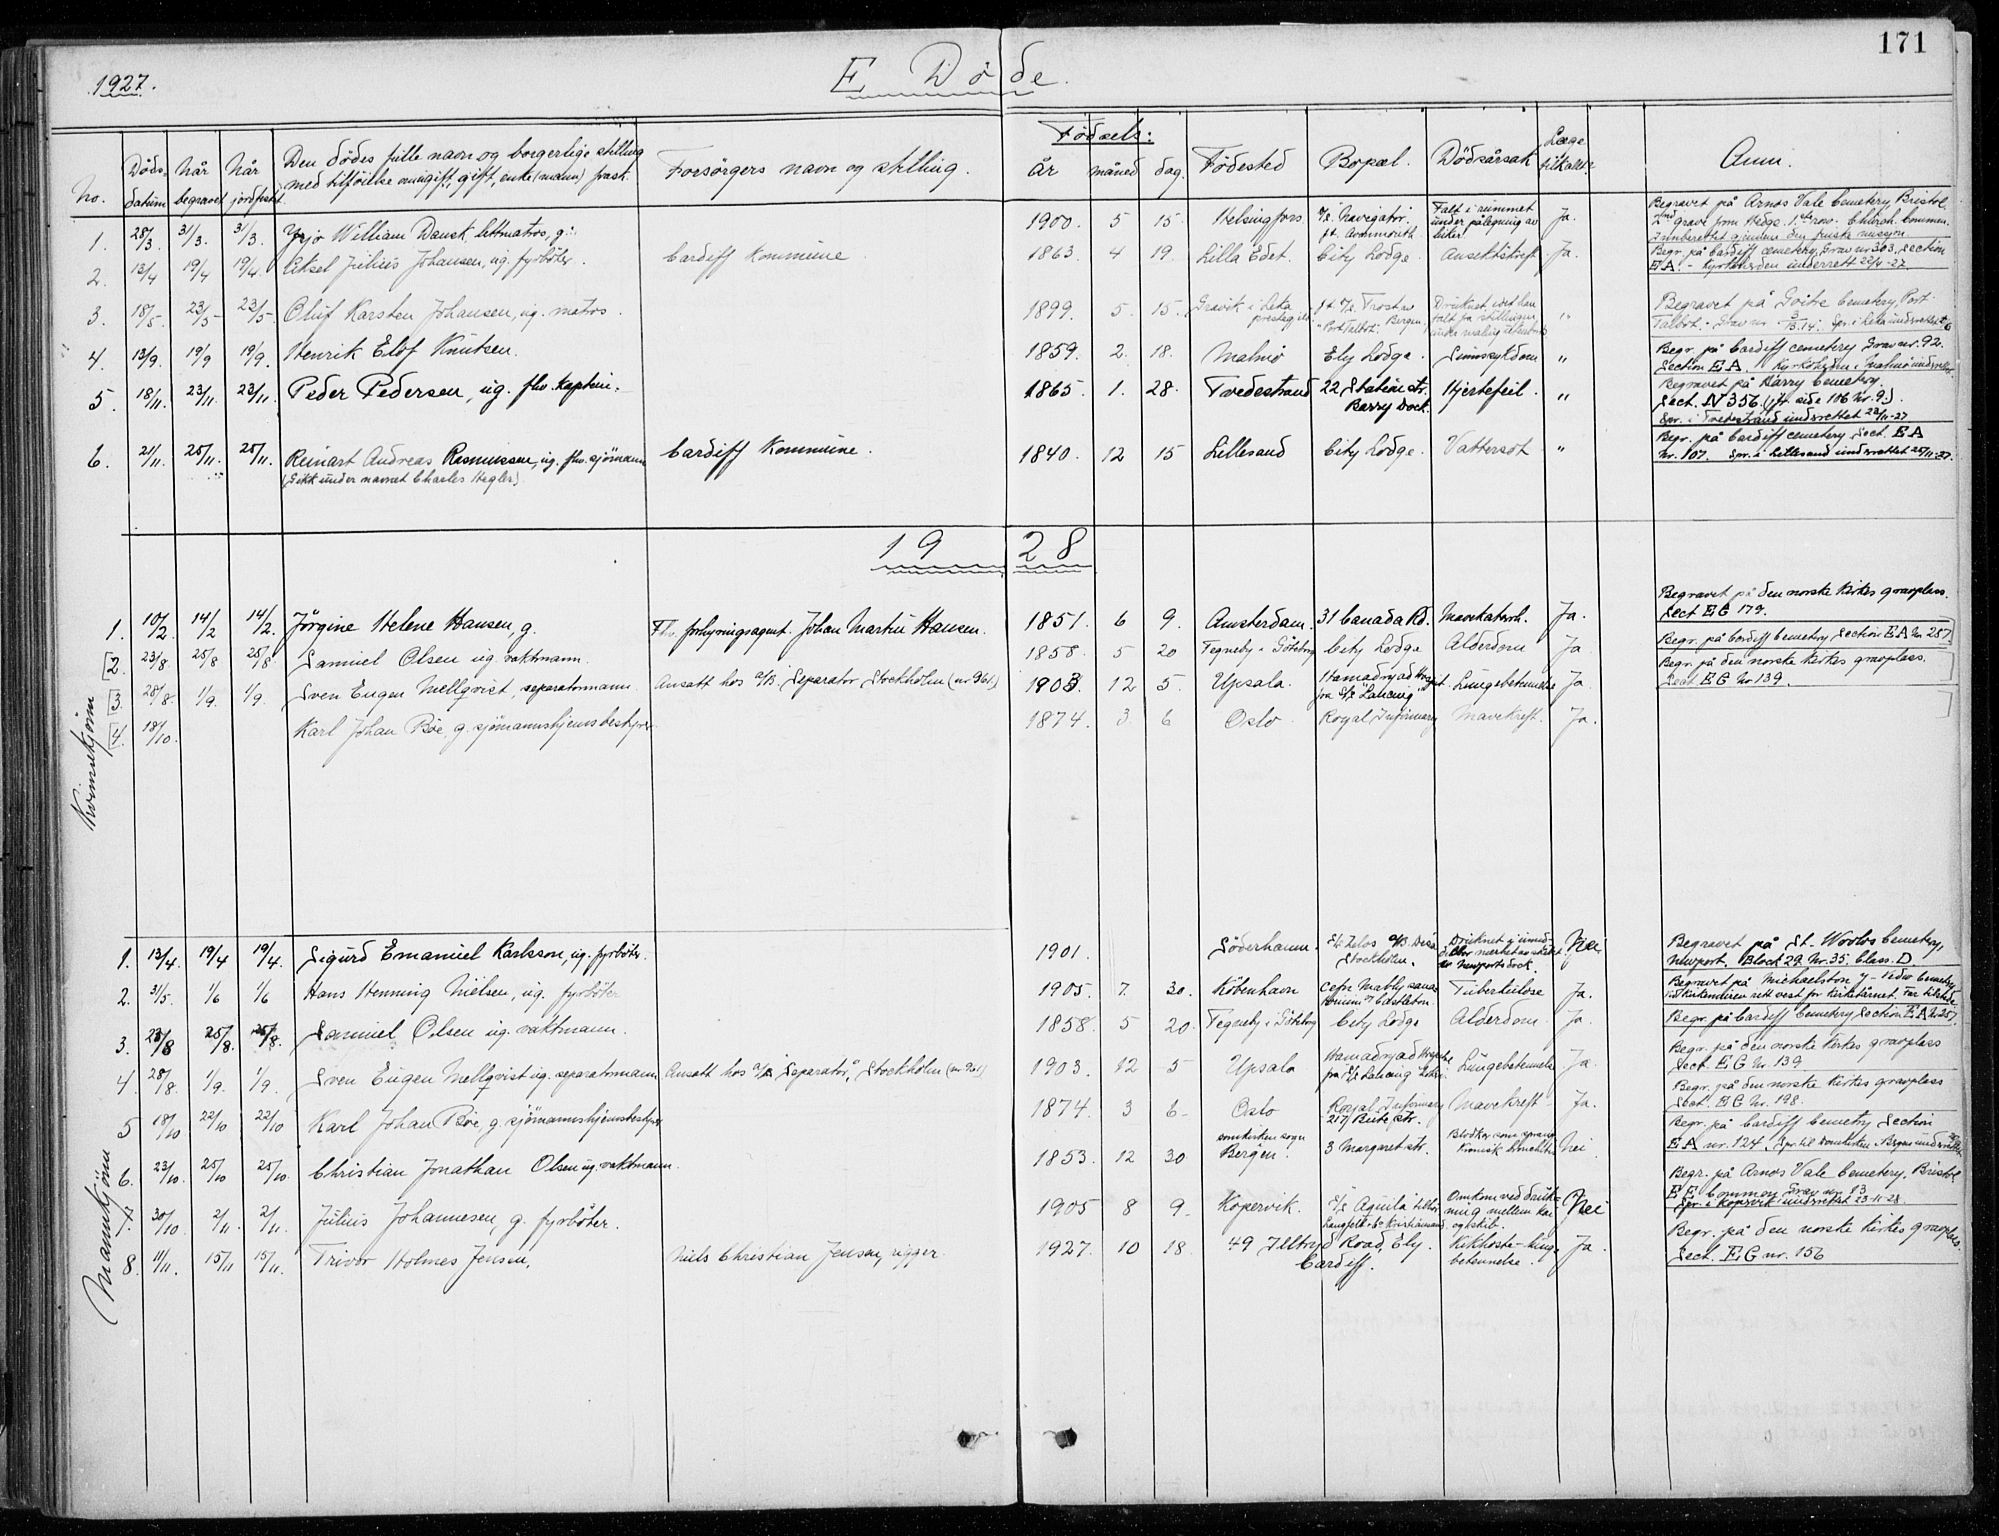 171
1927.
E Døde.
No.
Døds-datum
Når begravet
Når jordfestet
Den dödes fulle navn og borgerlige stilling
med tilföielse om ugift, gift, enke(mann) frask.
Forsörgers navn og stilling.
Födsels:
År måned dag.
Födested
Bopæl.
Dödsårsak
Læge tilkaldt?
Anm.
1. 28/3. 31/3. 31/3. Yrjo William Dansk, lettmatros, g. 1900. 5 15 Helsingfors. Navigator. ft. Avonmouth. Falt i rummet under pålegning av luker. Ja.
Begravet på Arnos Vale Cemetery, Bristol
2nd grave from Hedge. 1st row. Church. Common.
Innberettet gjennem den finske
2. 13/4 19/4 19/4. Aksel Julius Johansen, ug. fyrböter. Cardiff Kommune. 1863. 4 19. Lilla Edet. City Lodge. Ansektskreft Ja.
Begr. på Cardiff cemetery, Grav nr 303, Section
EA. - Kyrkoherden underrett 22/4-27.
3. 18/5. 23/5 23/5. Oluf Karsten Johansen, ug. matros. 1899. 5. 15. Gravik i Leka prestegjeld. Trosdav "Port Talbot". Bergen, Druknet, ved han falt fra stillingen under maling utenbords "
Begravet på Goitre Cemetery, Port-
Talbot. - Grav nr 3/B.14. Spr. i Leka underrettet
4. 13/9. 19/9 19/9. Henrik Elof Knutsen. 1859. 2. 18. Malmö Ely Lodge. Sinnssykdom "
Begr. på Cardiff cemetery Grav nr. 92.
Section EA. Kyrkoherden i Malmö underrettet
5. 18/11. 23/11. 23/11. Peder Pedersen, ug. fhv. Kaptein. 1865. 1. 28. Tvedestrand 22 Station str. Barry Dock. Hjertefeil. "
Begravet på Barry Cemetery.
Sect. N 356. (jfr. side 106 Nr. 9.)
Spr. i Tvedestrand underrettet 23/11-27
6. 21/11. 25/11. 25/11. Reinart Andreas Rasmussen, ug. fhv. sjömann Cardiff Kommune. 1840. 12 15 Lillesand City Lodge. Vattersot. "
(Gikk under navnet Charles Hegler)
Begr. på Cardiff cemetery, Sect. EA
Nr. 107. Spr. i Lillesand underrettet 25/11-27.
1928
Kvinnekjönn
1. 10/2. 14/2 14/2. Jörgine Helene Hansen, g. Fhv. forhyringsagent. Johan Martin Hansen. 1851. 6 9. Amsterdam. 31 Canada Rd. Mavekatarrh. Ja.
Begravet på den norske Kirkes gravplass.
Sect EG 179.
2. 23/8. 25/8 25/8 Samuel Olsen ug. vaktmann. 1858. 5 20 Tegneby i Göteborg City Lodge Alderdom Ja
Begr. på Cardiff Cemetery, Section EA Nr 257
3. 28/8. 1/9. 1/9. Sven Eugen Mellqvist, separatormann Ansatt hos A/B. Separator Stockholm (nr 961) 1903. 12 5. Upsala. Hamadryad Hospt. fra S/S "Lancing" Lungebetennelse Ja
Begr. på den norske Kirkes gravplass.
Sect EG Nr 139.
4. 18/10. Karl Johan Böe, g. sjömannshjemsbestyrer. 1874. 3. 6 Oslo. Royal Infirmary Mavekreft. Ja.
Mannkjönn
1. 13/4. 19/4 19/4. Sigurd Emanuel Karlsson, ug. fyrböter. 1901. Söderhamn. S/S Delos A/B. Stockholm. Druknet Newports dock. Nei
Begravet på St. Woolos Cemetery,
Newport. Block 29. Nr. 35. Class. D.
2. 31/5. 1/6 1/6 Hans Henning Nielsen, ug. fyrböter 1905. 7. 30. Köbenhavn Cefn Mably Castleton. Tuberkulose Ja.
Begravet på Michaelston y-Vedw Cemetery
rett vest for Kirketårnet. Far tilstede
3. 23/8 25/8. 25/8. Samuel Olsen ug. vaktmann. 1858. 5 20. Tegneby i Göteborg City Lodge Alderdom. Ja.
Begr. på Cardiff Cemetery Section EA Nr 257.
4. 28/8. 1/9. 1/9. Sven Eugen Mellqvist ug. separatormann Ansatt hos A/B Separator, Stockholm (nr 961) 1903. 12 5 Upsala Hamadryad Hospital fra S/S Lancing Lungebetennelse Ja.
Begr. på den norske Kirkes gravplass
Sect. EG Nr 139
5 18/10 22/10 22/10 Karl Johan Böe, g. sjömannshjemsbestyrer 1874. 3 6- Oslo Royal Infirmary 217 Bute str. Mavekreft- Ja.
Begr. på den norske Kirkes gravplass
Sect. EG Nr. 198.
6. 23/10. 25/10 25/10. Christian Jonathan Olsen ug. vaktmann. 1853. 12 30 Domkirken sogn Bergen. 3 Margaret str. Blodkar som sprang Kronisk bronchitis Nei
Begr. på Cardiff Cemetery Section
EA nr. 124. Spr. til Domkirken i Bergen underrettet
7. 30/10 2/11. 2/11. Julius Johannesen, g. fyrböter. 1905 8 9. Kopervik. S/S Aquila Kristiansand Omkom ved drukning mellem kai og skib. Nei
Begr. på Arnos Vale Cemetery. Bristol
EE Common Grav nr. 13
Spr. i Kopervik underrettet 23-11-28.
8. 11/11. 15/11 15/11. Trivor Holmes Jensen, Niels Christian Jensen, rigger. 1927. 10 18. 49 Illtryd Road, Ely. Cardiff. Kikhoste-lungebetennelse. Ja.
Begr. på den norske Kirkes gravplass.
Sect. EG nr. 156